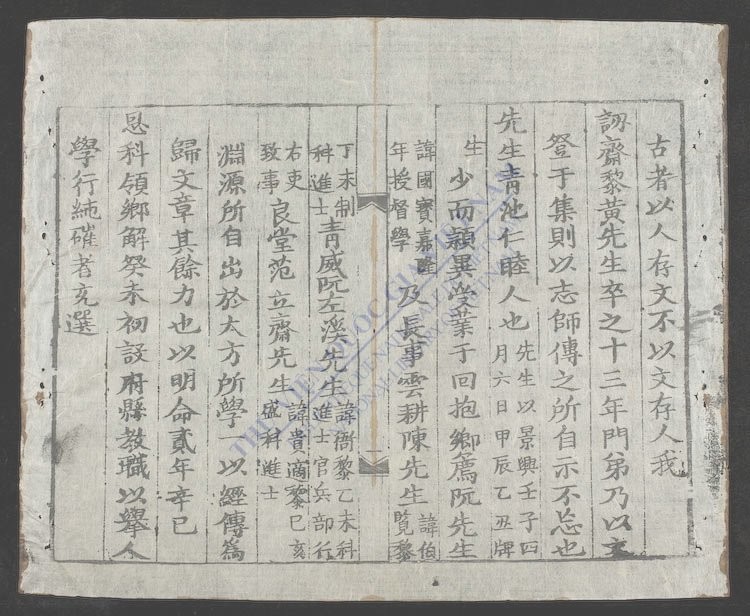 古者以人存文不以文存人我
訒齋黎黃先生卒之十三年門弟乃以文
登于集則以志師傳之所自示不忘也
先生青池仁睦人也先生以景興壬子四月六日甲辰乙丑牌
生少而穎異受業于回抱鄉薦阮先生
諱國寶嘉隆年授督學及長事雲耕陳先生諱伯覽黎
丁未制科進士青威阮左溪先生諱衙黎乙未科進士官兵部行
右吏致事良堂范立齋先生諱貴適黎己亥盛科進士
淵源所自出於大方所學一以經傳爲
歸文章其餘力也以明命貳年辛巳
恩科領鄉解癸未初設府縣教職以舉人
學行純確者充選
THƯ VIỆN QUỐC GIA VIỆT NAM
BIBLIOTHÈQUE NATIONALE DU VIETNAM
NATIONAL LIBRARY OF VIETNAM